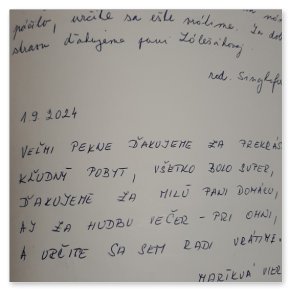 páčilo, určite sa ešte vrátime. Za dobrú
stravu ďakujeme pani Zálešákovej.
rod.
1.9.2024
VEĽMI PEKNE ĎAKUJEME ZA PREKRÁS
KĽUDNÝ POBYT, VŠETKO BOLO SUPER,
ĎAKUJEME ZA MILÚ PANI DOMÁCU,
AJ ZA HUDBU VEČER - PRI OHNI,
A URČITE SA SEM RADI VRÁTIME.